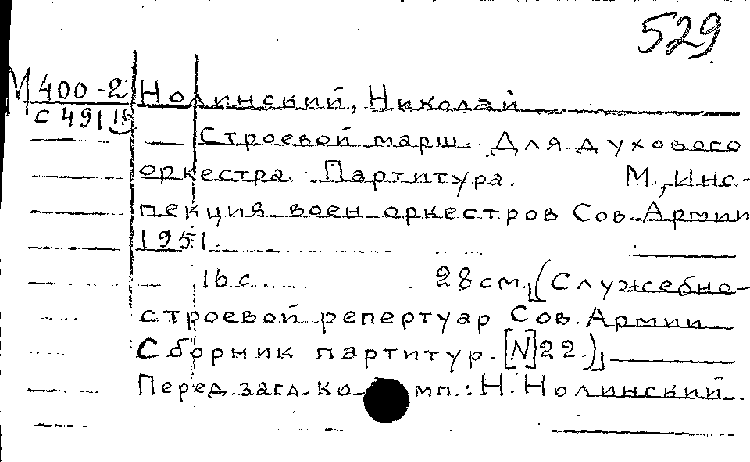 529
М400-2 Нолинский, Николай
С491 Строевой марш. Для духового
оркестра. Партитура. М., Инс-
пекция воен оркестров Сов. Армии
1951.
16 с. 28 см. (Служебно-
строевой репертуар Сов. Армии
Сборник партитур. [N]22.)
Перед загл. комп.: Н. Нолинский